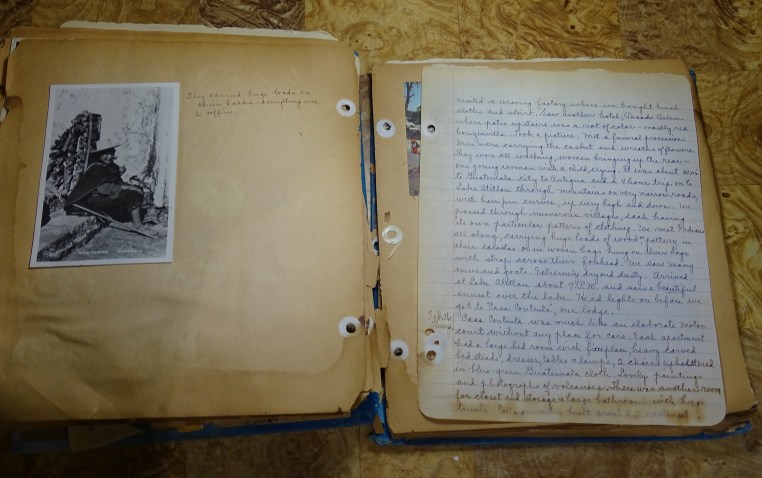 They carried huge loads on
their backs - everything even
to coffins.
visited a weaving factory where we bought lunch
cloths and skirt. Saw another hotel, Posada Belen
where patio upstairs was a riot of color - mostly red
bougainvilla. Took a picture. Met a funeral procession.
Men were carrying the casket and wreaths of flowers.
They were all walking, women bringing up the rear -
one young woman with a child, crying. It was about
to Guatemala city to Antigua and a 4 hour trip on to
Lake Atitlan through mountains on very narrow roads,
with hair pin curves, up very high and down. We
passed through numerous villages, each having
its own particular pattern of clothing. We met Indians
all along, carrying huge loads of wood or pottery in
their or in woven bags hung on their
with strap across their forhead. We saw many
cows and goats. Extremely dry and dusty. Arrived
at Lake Atitlan about 7 P.M. and saw a beautiful
sunset over the lake. Head lights on before we
got to "Casa Contenta", our lodge.
Feb. 16
"Casa Contenta was much like an elaborate motor
court without any place for cars. Each apartment
had a large bed room with fireplace, heavy carved
bed steads, dresser, tables & lamps, 2 chairs upholstered
in blue-green Guatemala cloth. Lovely paintings
and photographs of volcanoes. There was another room
for closet and storage & large bathroom with huge
towels. built around